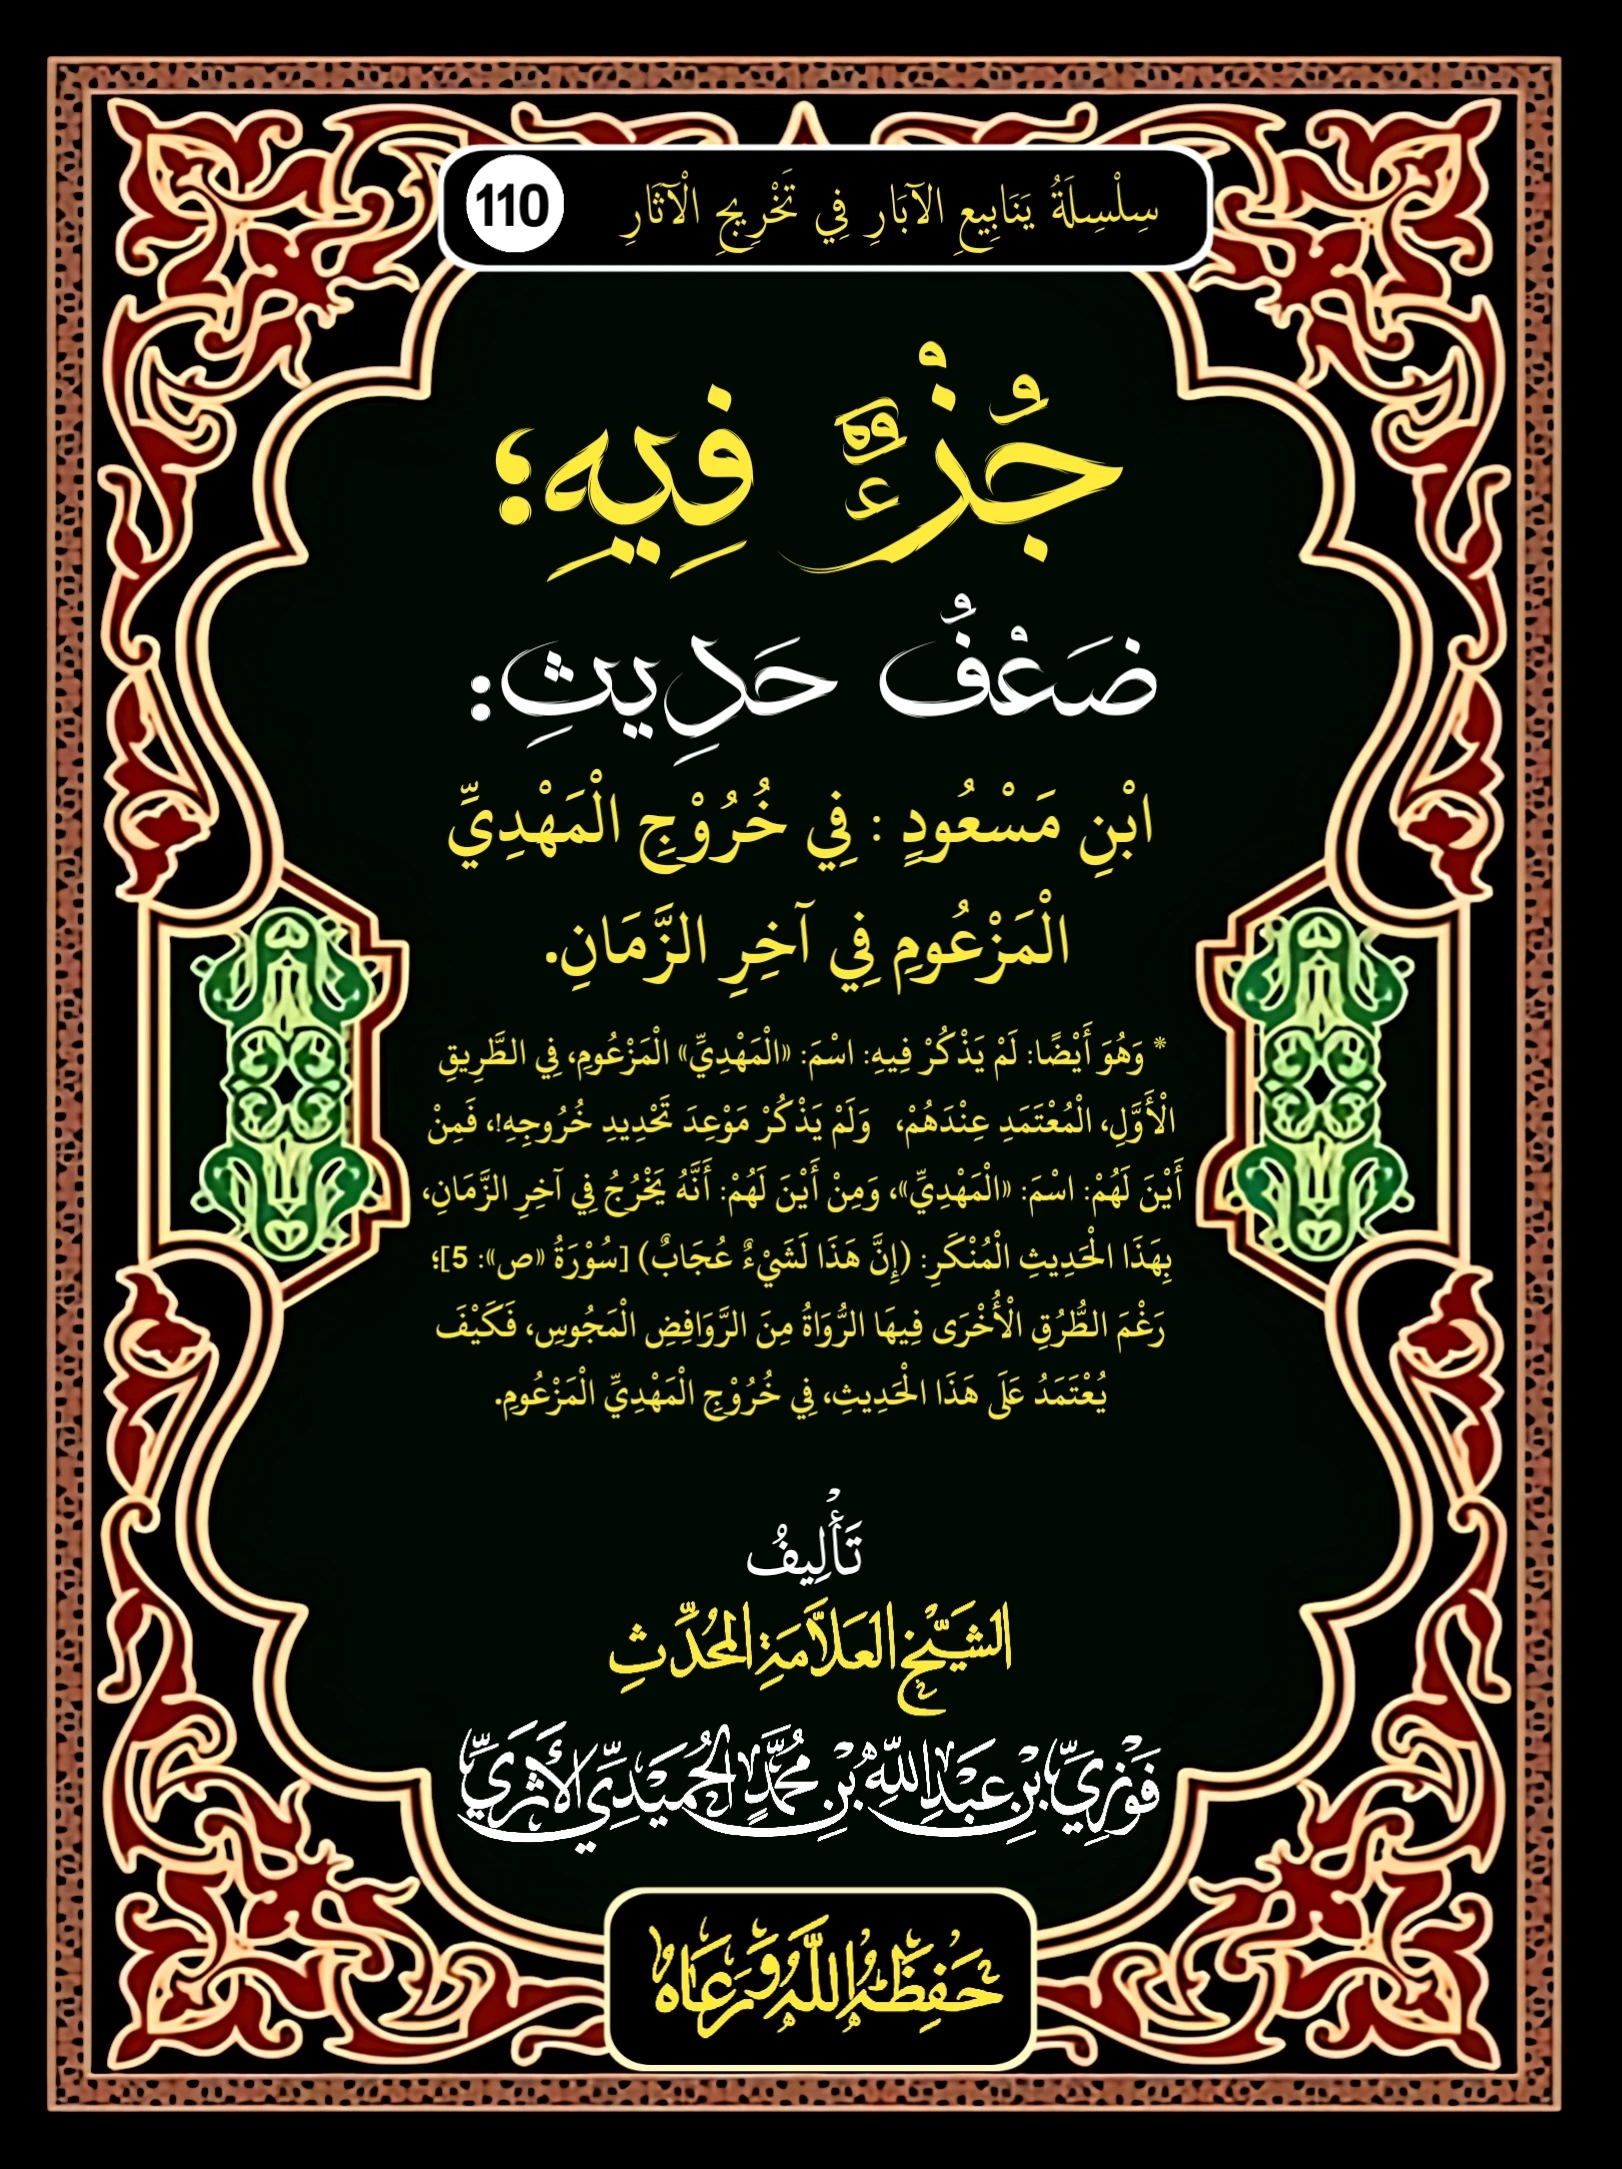 سِلْسِلَةُ يَنَابِيعِ الآبَارِ فِي تَخْرِيجِ الْآثَارِ 110
جُزْءٌ فِيهِ؛
ضَعْفُ حَدِيثِ:
ابْنِ مَسْعُودٍ : فِي خُرُوْجِ الْمَهْدِيِّ
الْمَزْعُومِ فِي آخِرِ الزَّمَانِ.
* وَهُوَ أَيْضًا: لَمْ يَذْكُرْ فِيهِ: اسْمَ: «الْمَهْدِيِّ» الْمَزْعُومِ، فِي الطَّرِيقِ
الْأَوَّلِ، الْمُعْتَمَدِ عِنْدَهُمْ، وَلَمْ يَذْكُرْ مَوْعِدَ تَحْدِيدِ خُرُوجِهِ!، فَمِنْ
أَيْنَ لَهُمْ: اسْمَ: «الْمَهْدِيِّ»، وَمِنْ أَيْنَ لَهُمْ: أَنَّهُ يَخْرُجُ فِي آخِرِ الزَّمَانِ،
بِهَذَا الْحَدِيثِ الْمُنْكَرِ: (إِنَّ هَذَا لَشَيْءٌ عُجَابٌ) [سُوْرَةُ «ص»: 5]؛
رَغْمَ الطُّرُقِ الْأُخْرَى فِيهَا الرُّوَاةُ مِنَ الرَّوَافِضِ الْمَجُوسِ، فَكَيْفَ
يُعْتَمَدُ عَلَى هَذَا الْحَدِيثِ، فِي خُرُوْجِ الْمَهْدِيِّ الْمَزْعُومِ.
تَأْلِيفُ
الشَّيْخِ العَلاَّمَةِ المُحَدِّثِ
فَوْزِيِّ بْنِ عَبْدِ اللَّهِ بْنِ مُحَمَّدٍ الحُمَيْدِيِّ الأَثَرِيِّ
حَفِظَهُ اللَّهُ وَرَعَاهُ